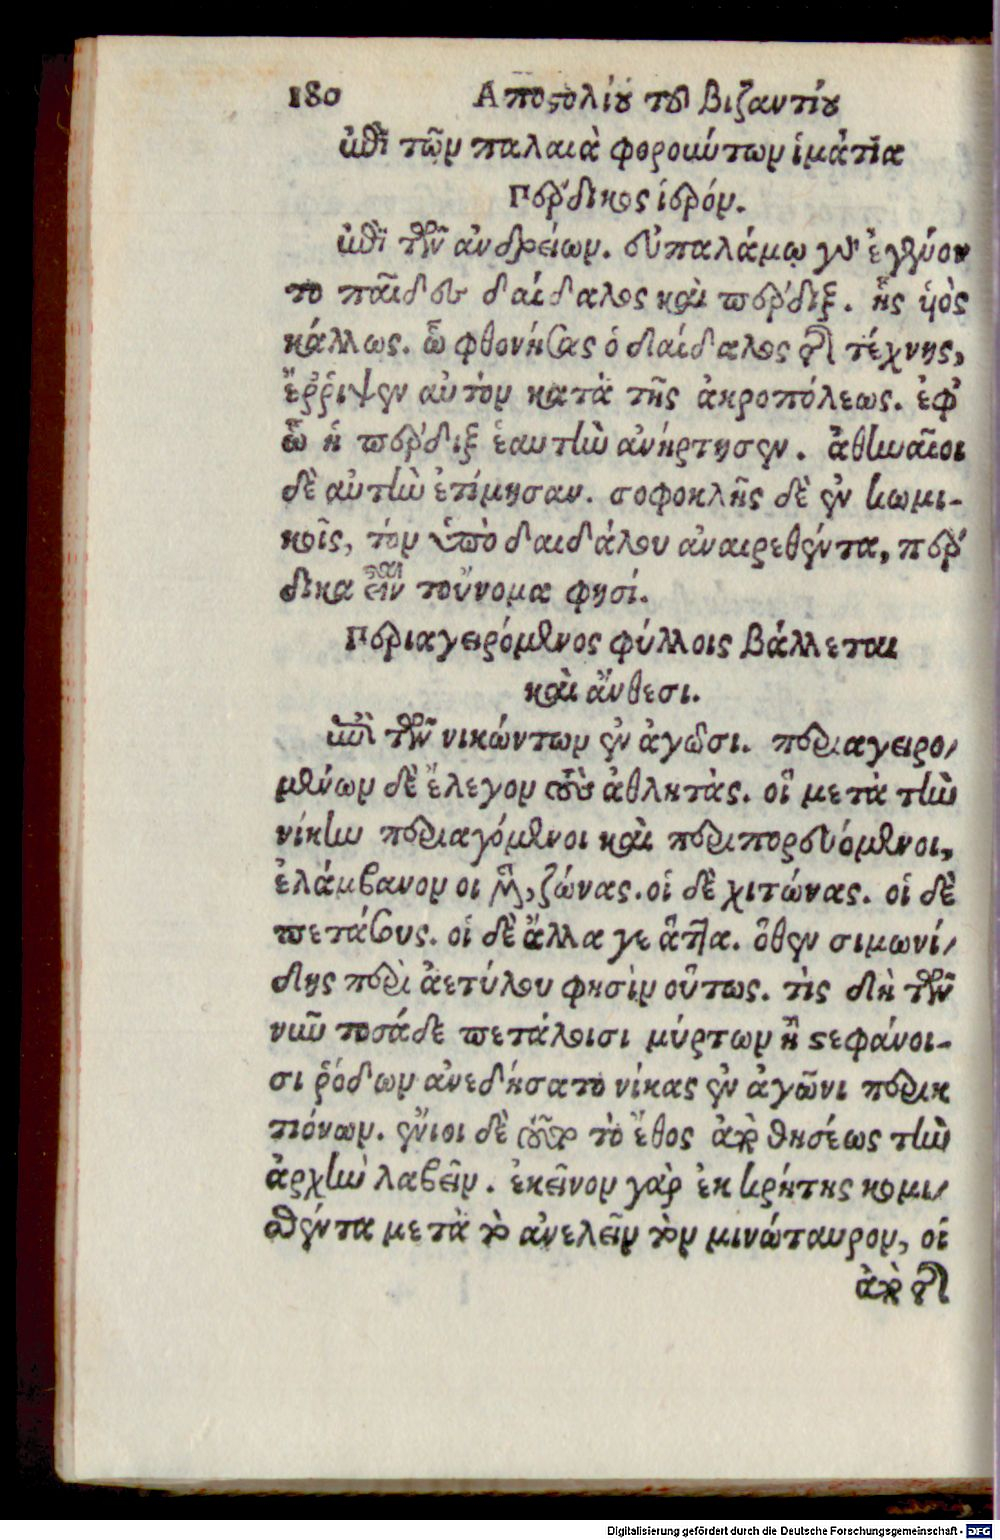 180 Αποστολίου τοῦ βιζαντίου
ἐπὶ τῶν παλαιὰ φορούντων ἱμάτια
Πέρδικος ἱερόν.
ἐπὶ τῶν ἀνδρείων. εὐπαλάμῳ γὰρ ἐγένον
το παῖδες δαίδαλος καὶ πέρδιξ. ἧς ὑὸς
κάλλως. ᾧ φθονήσας ὁ δαίδαλος τῆς τέχνης,
ἔῤῥιψεν αὐτὸν κατὰ τῆς ἀκροπόλεως. ἐφ᾽
ᾧ ἡ πέρδιξ ἑαυτὴν ἀνήρτησεν. ἀθηναῖοι
δὲ αὐτὴν ἐτίμησαν. σοφοκλῆς δὲ ἐν κωμι-
κοῖς, τόν ὑπὸ δαιδάλου αναιρεθέντα, πέρ
δικα εἶναι τοὔνομα φησί.
Περιαγειρόμενος φύλλοις βάλλεται
καὶ ἄνθεσι.
ἐπὶ τῶν νικώντων ἐν ἀγῶσι. περιαγειρο/
μένων δὲ ἔλεγον τοὺς ἀθλητὰς. οἳ μετὰ τὴν
νίκην περιαγόμενοι καὶ περιπορευόμενοι,
ἐλάμβανον οι μὲν, ζώνας. οἱ δὲ χιτώνας. οἱ δὲ
πετάσους. οἱ δὲ ἄλλα γε ἅττα. ὅθεν σιμωνί/
δης περὶ ἀετύλου φησὶν οὕτως. τὶς δὴ τῶν
νῦν τοσάδε πετάλοισι μύρτων ἢ στεφάνοι-
σι ῥόδων ανεδήσατο νίκας ἐν ἀγῶνι περικ
τιόνων. ἔνιοι δὲ τοῦτο τὸ ἔθος ἀπὸ θησέως τὴν
ἀρχὴν λαβεῖν. ἐκεῖνον γὰρ ἐκ κρήτης κομι/
σθέντα μετὰ τὸ ἀνελεῖν τὸν μινώταυρον, οἱ
ἀπὸ τῆς
Digitalisierung gefördert durch die Deutsche Forschungsgemeinschaft - DFG